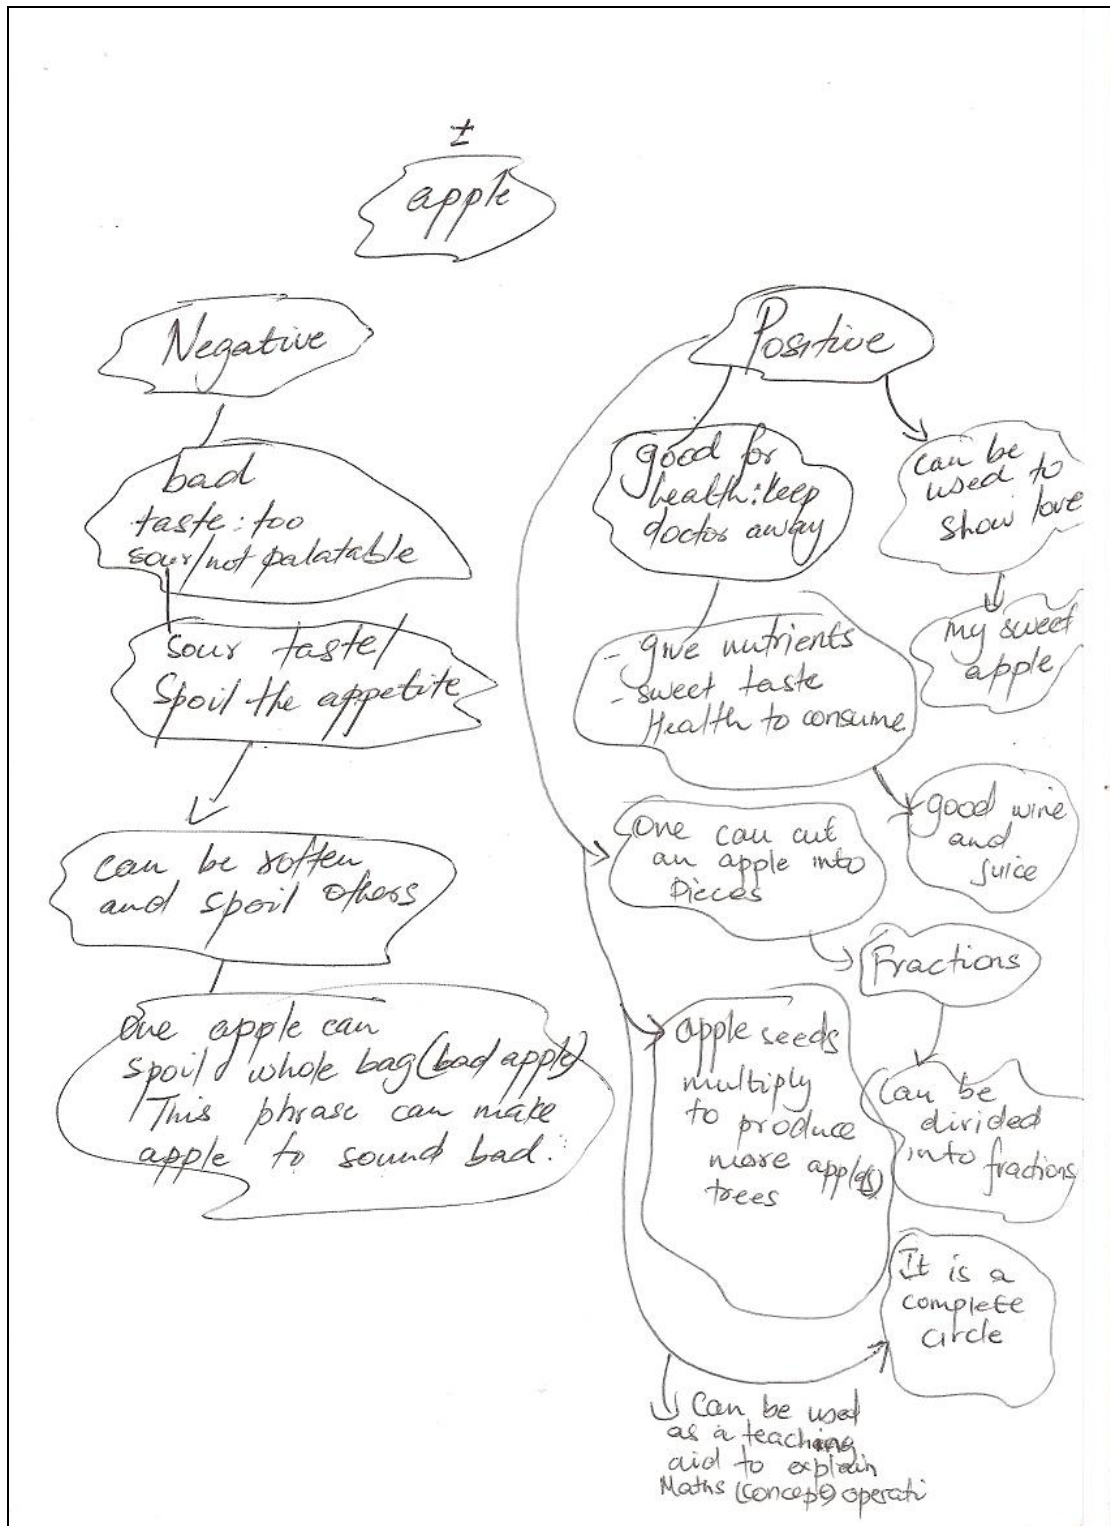 ±
apple
Negative
bad
taste: too
sour/not palatable
sour taste/
Spoil the appetite
can be rotten
and spoil others
One apple can
spoil whole bag (bad apple)
This phrase can make
apple to sound bad.
Positive
good for
health: keep
doctor away
- give nutrients
- sweet taste
Health to consume
can be
used to
show love
my sweet
apple
good wine
and
juice
One can cut
an apple into
Pieces
Fractions
Can be
divided
into fractions
apple seeds
multiply
to produce
more apple(s)
trees
It is a
complete
circle
Can be used
as a teaching
aid to explain
Maths (concept) operati